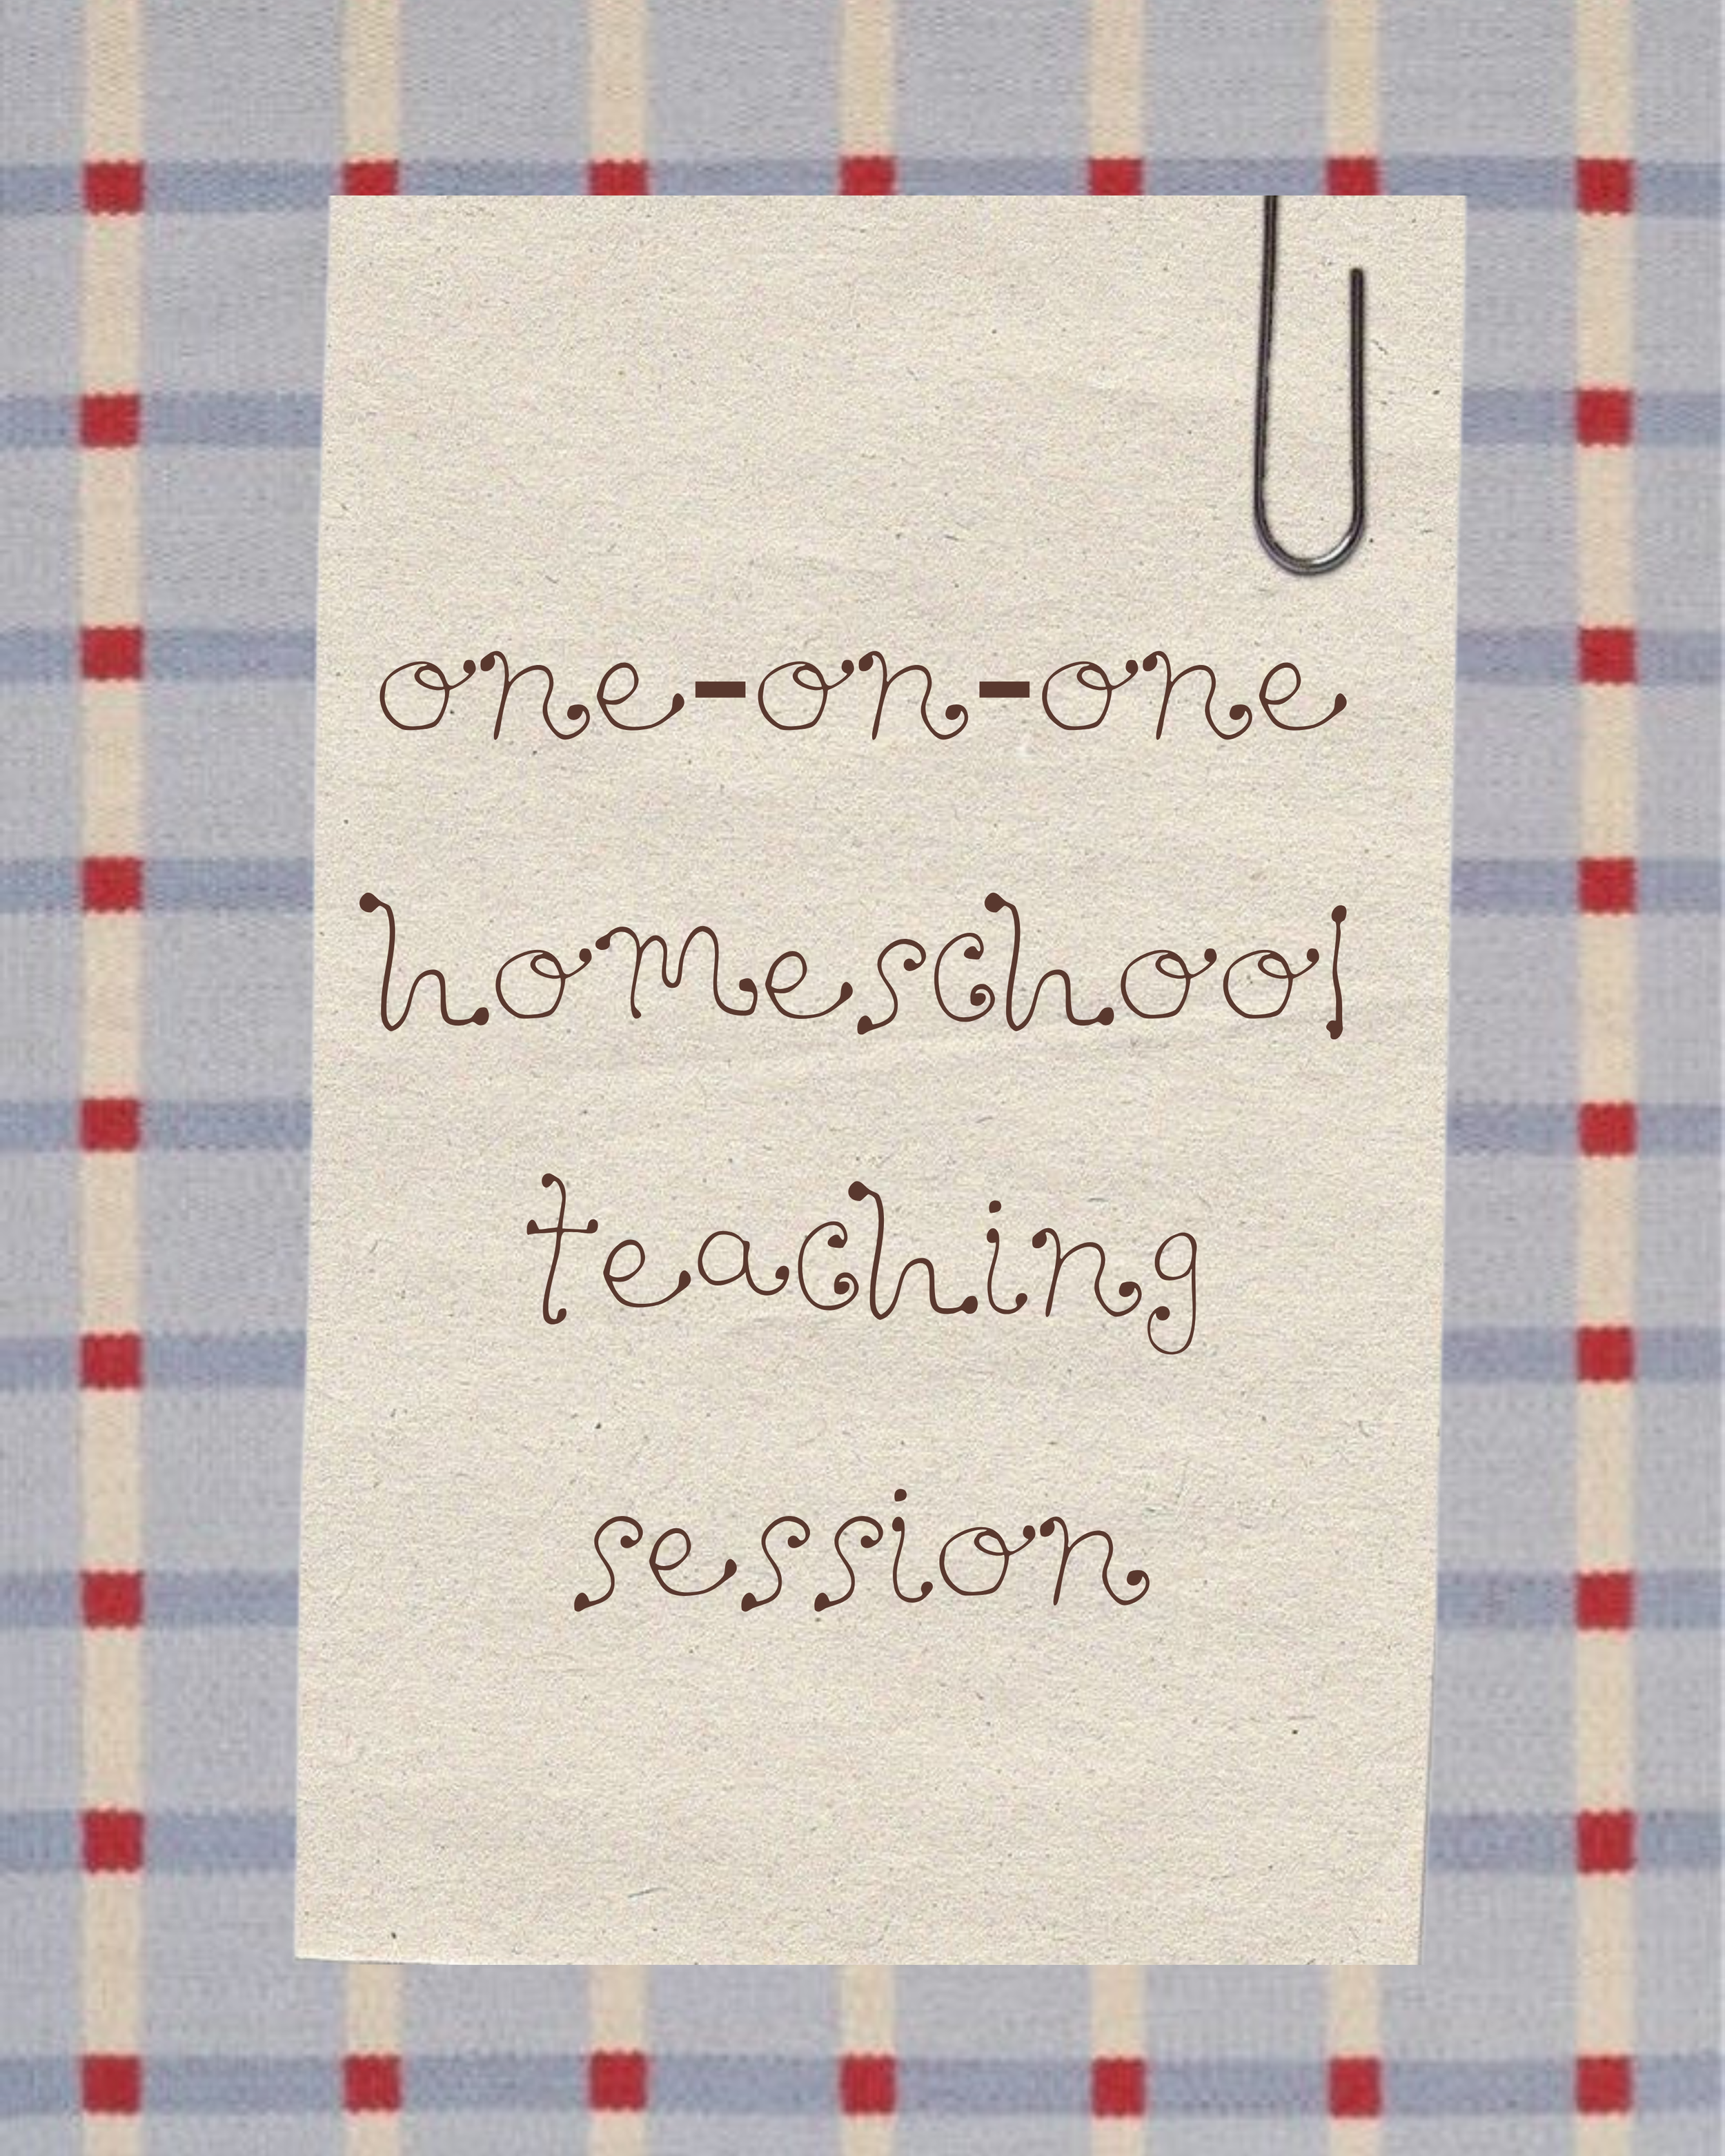 one-on-one
homeschool
teaching
session